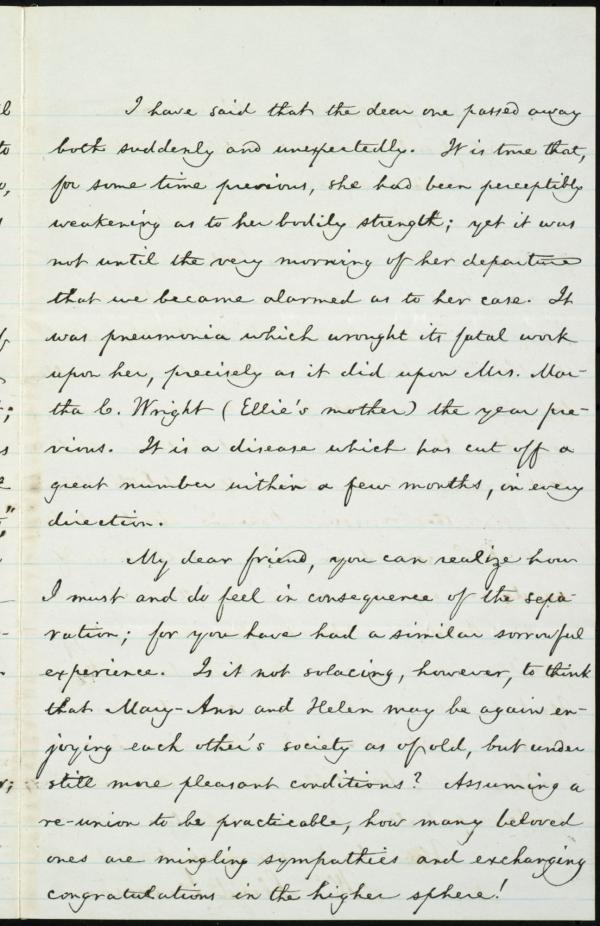 I have said that the dear one passed away
both suddenly and unexpectedly. It is true that,
for some time previous, she had been perceptibly
weakening as to her bodily strength; yet it was
not until the very morning of her departure
that we became alarmed as to her case. It
was pneumonia which wrought its fatal work
upon her, precisely as it did upon Mrs. Mar-
tha C. Wright (Ellie's mother) the year pre-
vious. It is a disease which has cut off a
great number within a few months, in every
direction.
My dear friend, you can realize how
I must and do feel in consequence of the sepa-
ration; for you have had a similar sorrowful
experience. Is it not solacing, however, to think
that Mary-Ann and Helen may be again en-
joying each other's society as of old, but under
still more pleasant conditions? Assuming a
re-union to be practicable, how many beloved
ones are mingling sympathies and exchanging
congratulations in the higher sphere!